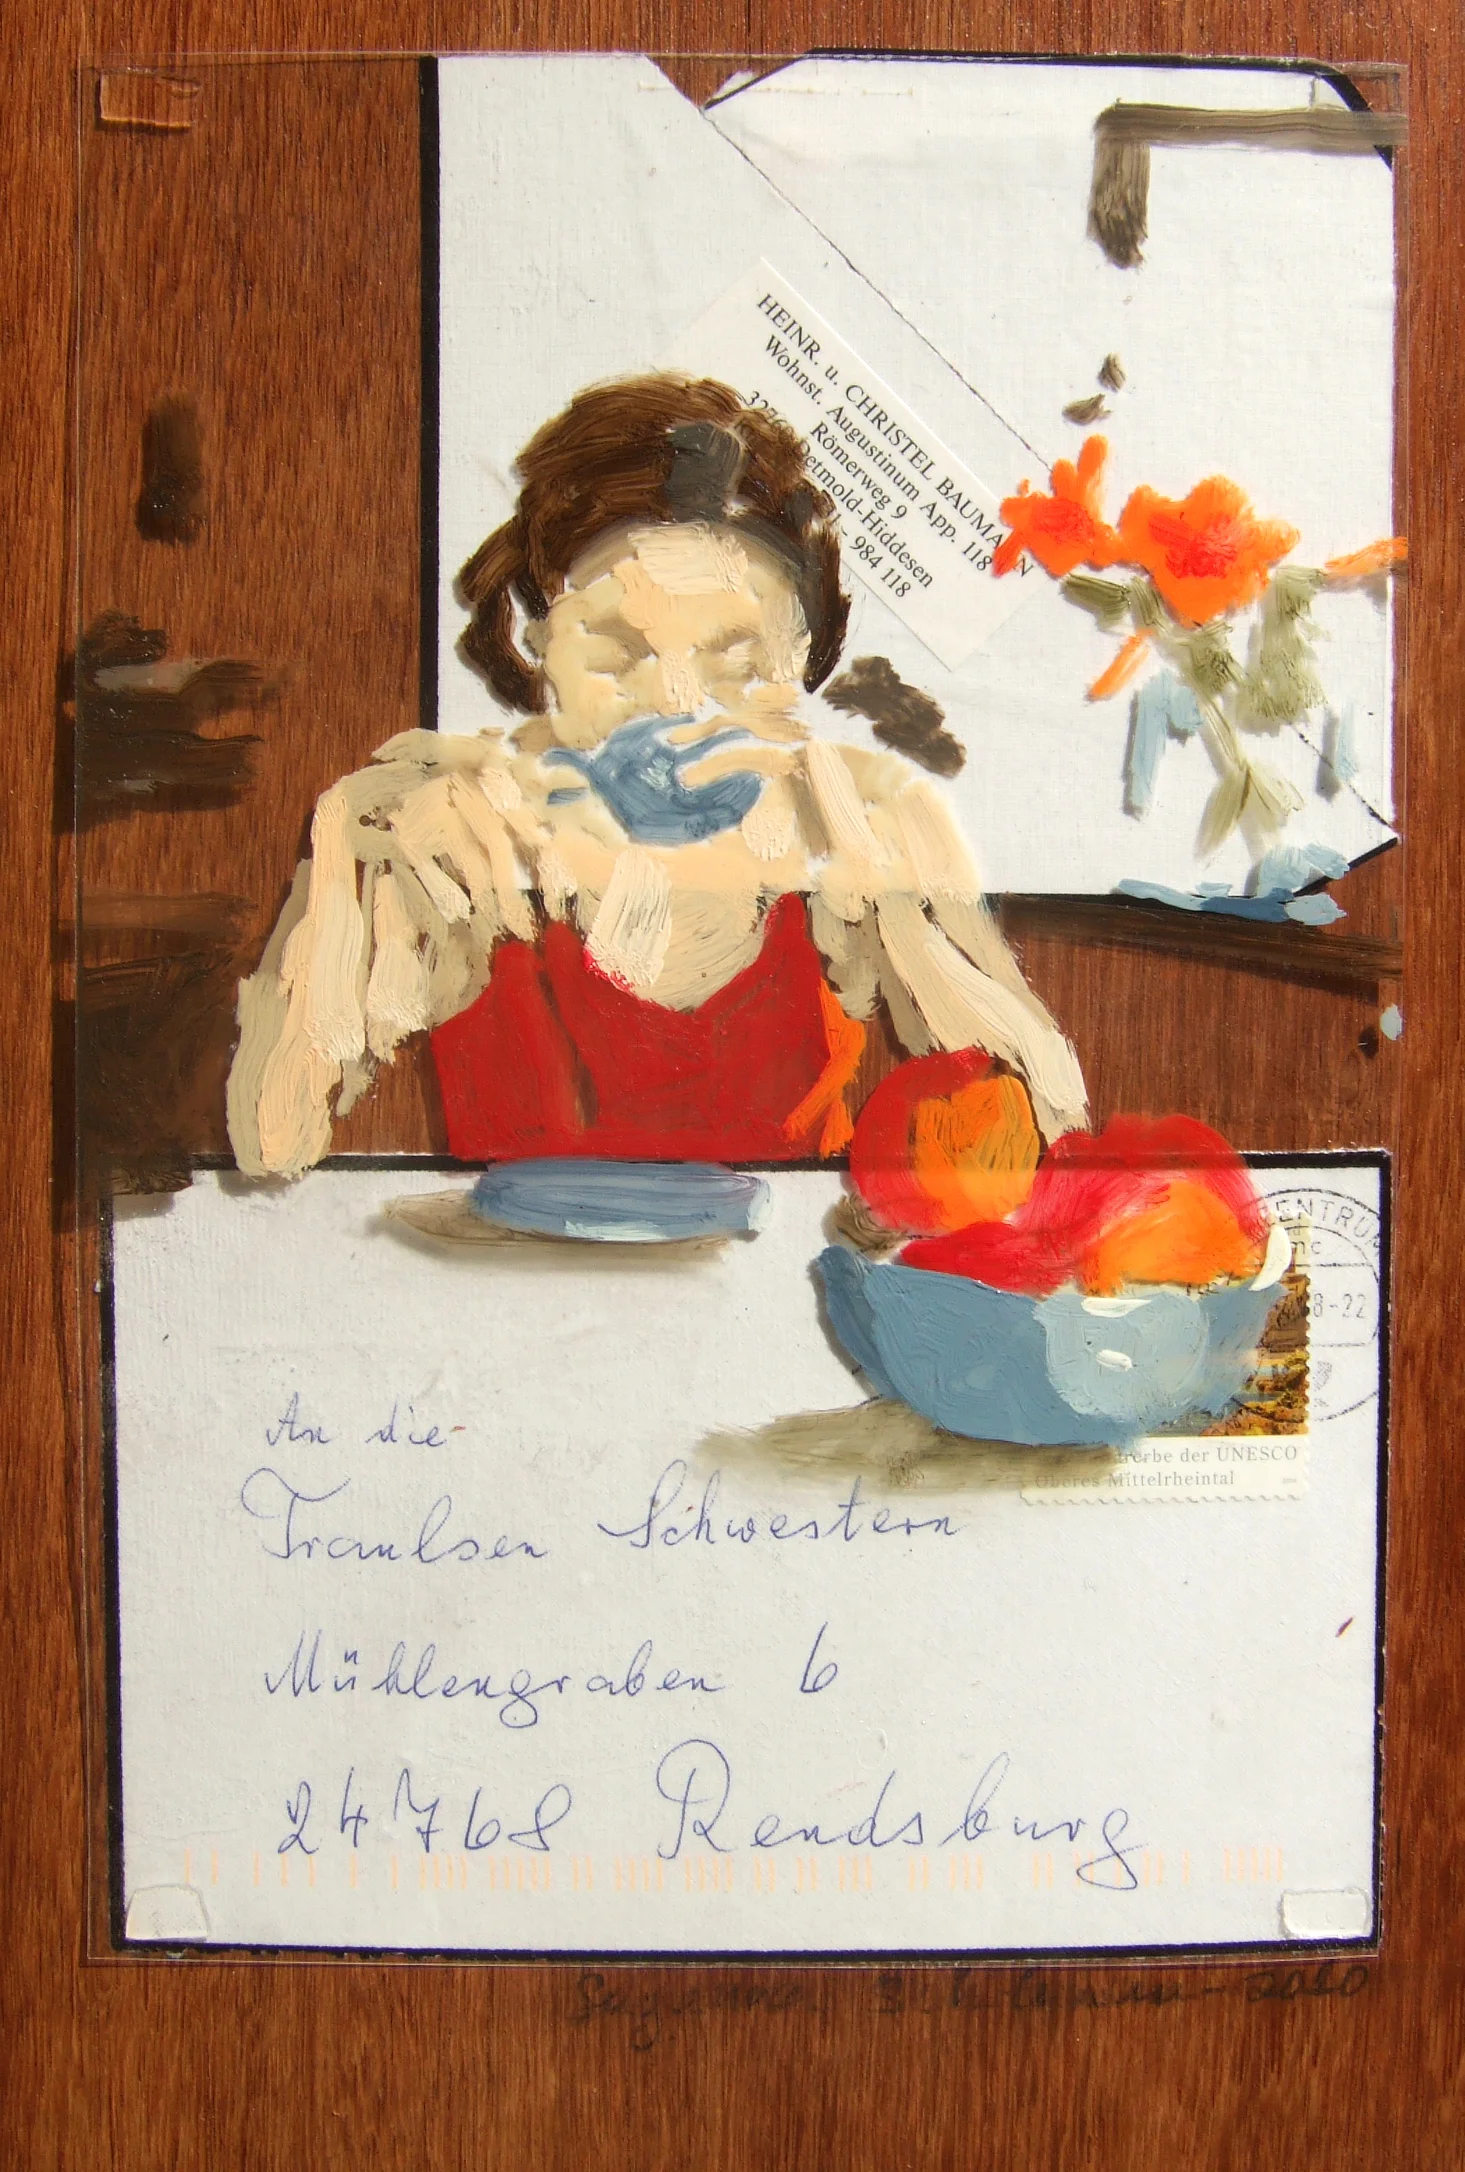 HEINR. u. CHRISTEL BAUMA N
Wohnst. Augustinum App. 118
Römerweg 9
Detmold-Hiddesen
- 984 118
ZENTRUM
8-22
erbe der UNESCO
Oberes Mittelrheintal
An die
Traulsen Schwestern
Mühlengraben 6
24768 Rendsburg
2010